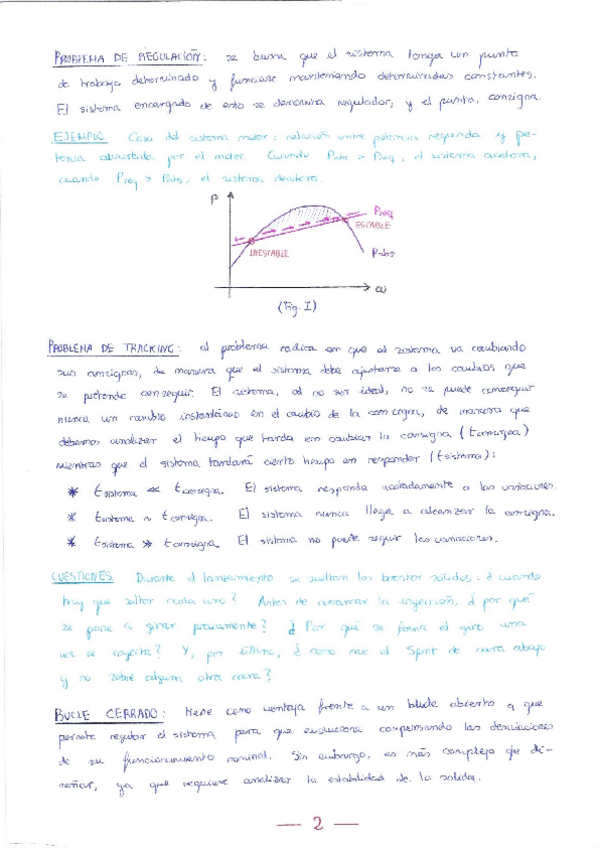 PROBLEMA DE REGULACIÓN: se busca que el sistema tenga un punto
de trabajo determinado y funcione manteniendo determinadas constantes.
El sistema encargado de esto se denomina regulador, y el punto, consigna.
EJEMPLO. Caso del sistema motor: relación entre potencia requerida y po-
tencia absorbida por el motor. Cuando Pabs > Preq, el sistema acelera,
cuando Preq > Pabs, el sistema decelera.
P
Preq
ESTABLE
INESTABLE
Pabs
ω
(Fig. I)
PROBLEMA DE TRACKING: el problema radica en que el sistema va cambiando
sus consignas, de manera que el sistema debe ajustarse a los cambios que
se pretende conseguir. El sistema, al no ser ideal, no se puede conseguir
nunca un cambio instantáneo en el cambio de la consigna, de manera que
debemos analizar el tiempo que tarda en cambiar la consigna (tconsigna)
mientras que el sistema tardará cierto tiempo en responder (tsistema):
* tsistema << tconsigna. El sistema responde acertadamente a las variaciones.
* tsistema ~ tconsigna. El sistema nunca llega a alcanzar la consigna.
* tsistema >> tconsigna. El sistema no puede seguir las variaciones.
CUESTIONES. Durante el lanzamiento se sueltan los booster sólidos: ¿cuándo
hay que soltar cada uno? Antes de arrancar la inyección, ¿por qué
se pone a girar previamente? ¿Por qué se forma el giro una
vez se inyecta? Y, por último, ¿cómo cae el Spirit de cara abajo
y no sobre alguna otra cara?
BUCLE CERRADO: tiene como ventaja frente a un bucle abierto a que
permite regular el sistema para que evolucione compensando las desviaciones
de su funcionamiento nominal. Sin embargo, es más complejo de di-
señar, ya que requiere analizar la estabilidad de la salida.
— 2 —